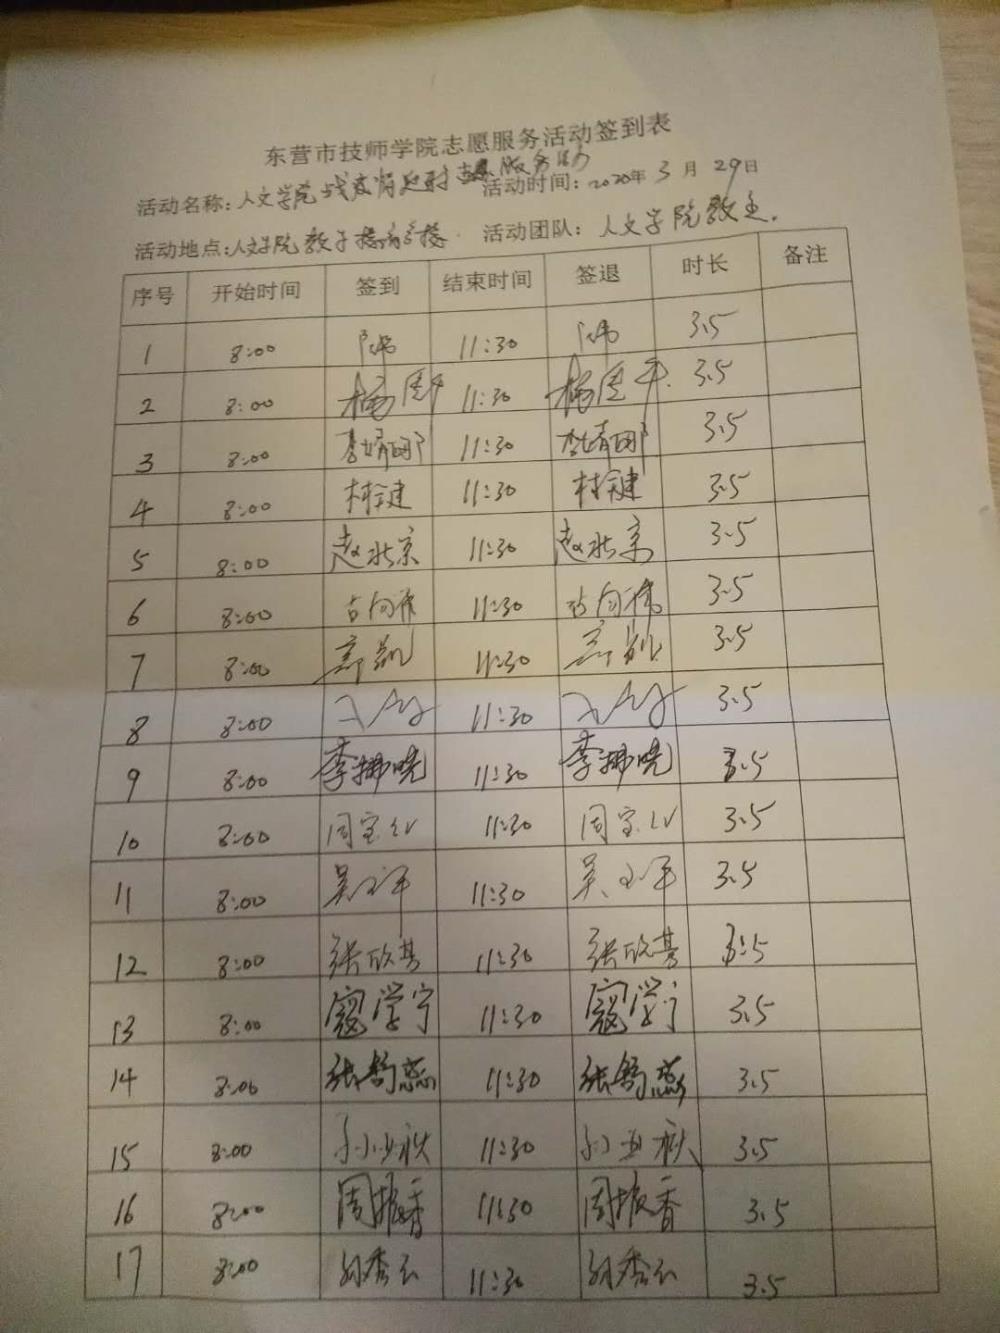 东营市技师学院志愿服务活动签到表
活动名称：人文学院战疫 服务活动 活动时间：2020年3月29日
活动地点：人文学院教学楼 活动团队：人文学院教工
序号 开始时间 签到 结束时间 签退 时长 备注
1 8:00 11:30 3.5
2 8:00 11:30 3.5
3 8:00 李婧娜 11:30 李婧娜 3.5
4 8:00 11:30 3.5
5 8:00 赵北京 11:30 赵北京 3.5
6 8:00 11:30 3.5
7 8:00 11:30 3.5
8 8:00 11:30 3.5
9 8:00 李拂晓 11:30 李拂晓 3.5
10 8:00 周宝红 11:30 周宝红 3.5
11 8:00 吴玉军 11:30 吴玉军 3.5
12 8:00 张欣芸 11:30 张欣芸 3.5
13 8:00 寇学宁 11:30 寇学宁 3.5
14 8:00 张舒蕊 11:30 张舒蕊 3.5
15 8:00 孙亚秋 11:30 孙亚秋 3.5
16 8:00 周振香 11:30 周振香 3.5
17 8:00 孙秀云 11:30 孙秀云 3.5